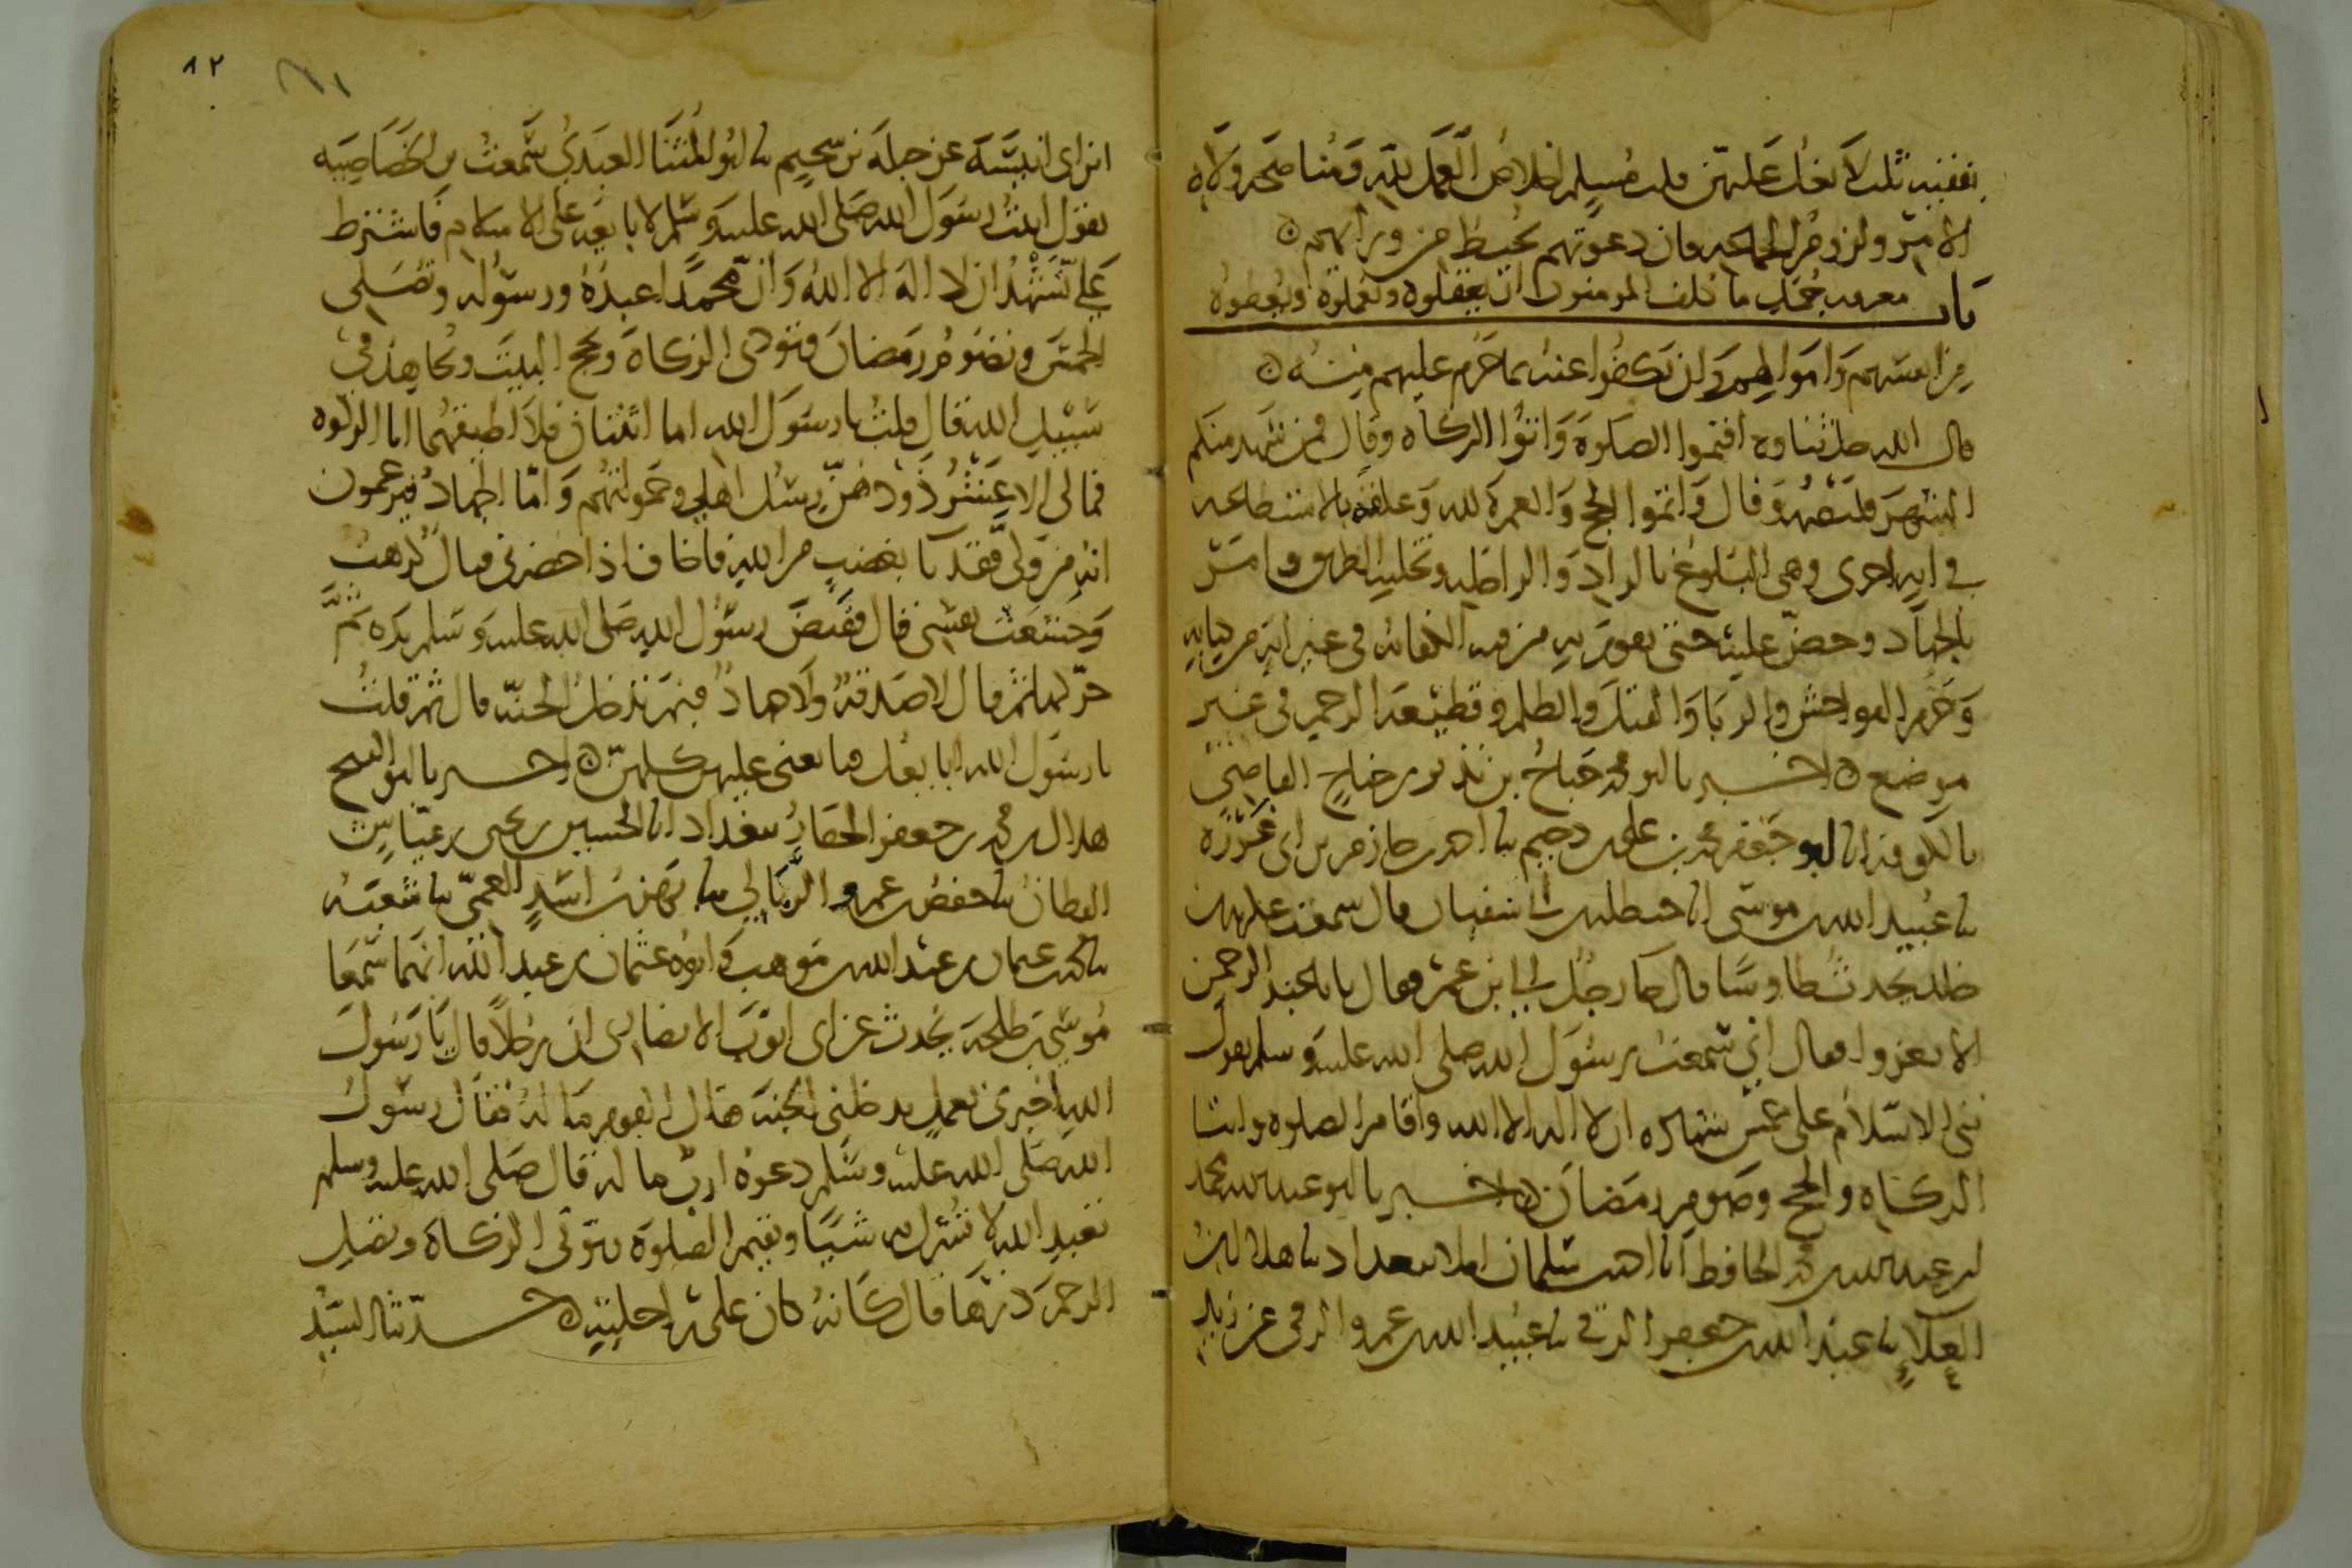 بفقيه ثلث لا يغل عليهن قلب مسلم اخلاص العمل لله ومناصحة ولاة
الامر ولزوم الجماعه فان دعوتهم تحيط من ورايهم
باب معرفه جمل ما كلف المومنون ان يعقلوه ويعملوه ويعطوه
من انفسهم واموالهم وان يكفوا عنه مما حرم عليهم منه
قال الله جل ثناوه اقيموا الصلوة واتوا الزكاة وقال فمن شهد منكم
الشهر فليصمه وقال واتموا الحج والعمرة لله وعلقه بالاستطاعه
في ايه اخرى وهي البلوغ بالزاد والراحله وتخليه الطريق وامر
بالجهاد وحض عليه حتى يقوم به من فيه الكفايه في غير ايه من كتابه
وحرم الفواحش والربا والقتل والظلم وقطيعة الرحم في غير
موضع اخبرنا ابو محمد جناح بن نذير بن جناح القاضي
بالكوفه انا ابو جعفر محمد بن علي بن دحيم نا احمد بن حازم بن ابي غرزه
نا عبيد الله بن موسى انا حنظله بن ابي سفيان قال سمعت عكرمه بن
خلد يحدث طاوسا قال جا رجل الى ابن عمر فقال يابا عبد الرحمن
الا تغزوا فقال اني سمعت رسول الله صلى الله عليه وسلم يقول
بني الاسلام على خمس شهاده ان لا اله الا الله واقام الصلوه وايتا
الزكاه والحج وصوم رمضان اخبرنا ابو عبد الله محمد
بن عبد الله بن محمد الحافظ انا احمد بن سلمان املا ببغداد نا هلال بن
العلاء نا عبد الله بن جعفر الرقي نا عبيد الله بن عمرو الرقي عن زيد
بن ابي انيسه عن جبله بن سحيم نا ابو المثنا العبدي سمعت بن الخصاصيه
يقول اتيت رسول الله صلى الله عليه وسلم لابايعه على الاسلام فاشترط
علي تشهد ان لا اله الا الله وان محمدا عبده ورسوله وتصلي
الخمس وتصوم رمضان وتودي الزكاة وتحج البيت وتجاهد في
سبيل الله قال قلت يا رسول الله اما اثنتان فلا اطيقهما اما الزكوه
فمالي الا عشر ذود هن رسل اهلي وحمولتهم واما الجهاد فيزعمون
انه من ولى فقد باء بغضب من الله فاخاف اذا حضرني قتال كرهت
وخشعت نفسي قال فقبض رسول الله صلى الله عليه وسلم يده ثم
حركها ثم قال لا صدقة ولا جهاد فبم تدخل الجنه قال ثم قلت
يا رسول الله ابايعك فبايعني عليهن كلهن اخبرنا ابو الفتح
هلال بن محمد بن جعفر الحفار ببغداد انا الحسين بن يحيى بن عياش
القطان نا حفص بن عمرو الربالي نا بهز بن اسد العمي نا شعبه
نا محمد بن عثمان بن عبد الله بن موهب وابوه عثمان بن عبد الله انهما سمعا
موسى بن طلحة يحدث عن ابي ايوب الانصاري ان رجلا قال يا رسول
الله اخبرني بعمل يدخلني الجنه فقال القوم ما له فقال رسول
الله صلى الله عليه وسلم دعوه ارب ما له قال صلى الله عليه وسلم
تعبد الله لا تشرك به شيا وتقيم الصلوة وتوتي الزكاة وتصل
الرحم ذرها قال كانه كان على راحلته حدثنا السيد
٨٢